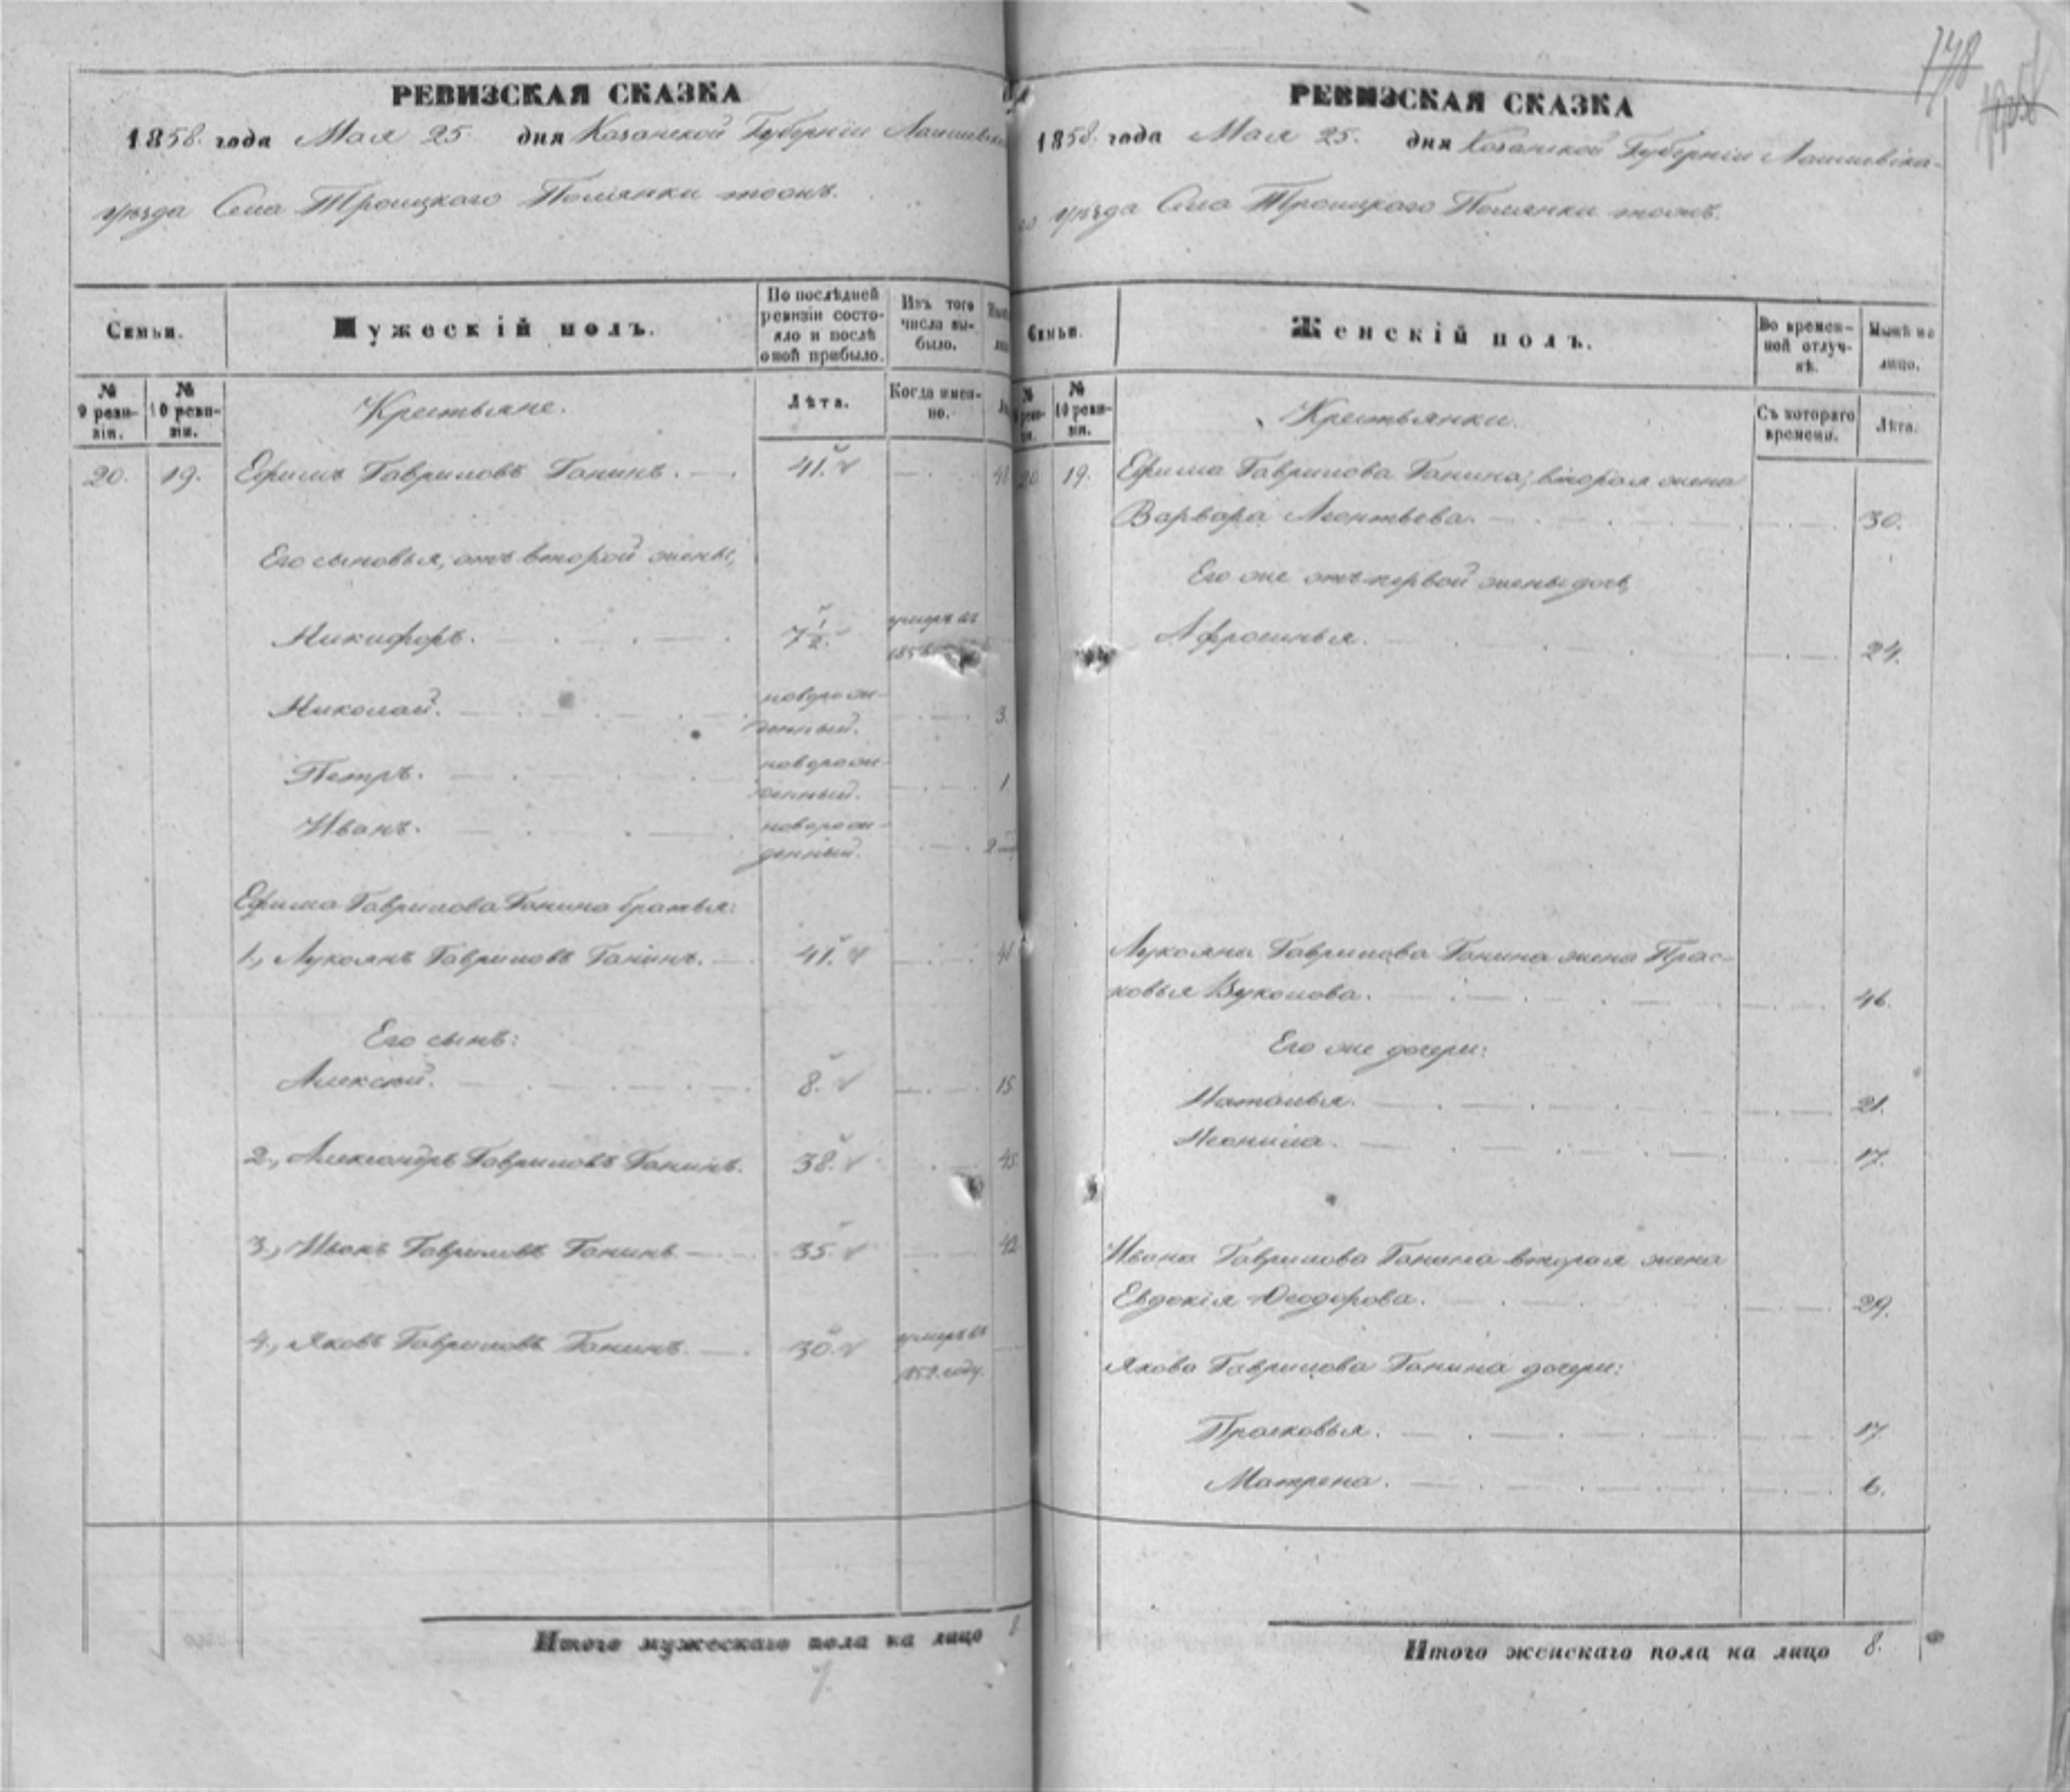 РЕВИЗСКАЯ СКАЗКА
1858. года Мая 25 дня Казанской Губернiи Лаишевска
уѣзда Села Троицкаго Полянки тожъ.
Семьи.
Мужескiй полъ.
По послѣдней ревизiи состояло и послѣ оной прибыло.
Изъ того числа выбыло.
№ 9 ревизiи.
№ 10 ревизiи.
Крестьяне.
Лѣта.
Когда именно.
20. 19. Ефимъ Гавриловъ Ганинъ. 41. 41
Его сыновья, отъ второй жены,
Никифоръ. 7 1/2. умеръ въ
185
Николай. новорож-
денный. 3.
Петръ. новорож-
денный. 1
Иванъ. новорож-
денный. 2
Ефима Гаврилова Ганина братья:
1., Лукоянъ Гавриловъ Ганинъ. 41. 41
Его сынъ:
Алексѣй. 8. 15
2., Александръ Гавриловъ Ганинъ. 38. 45
3., Иванъ Гавриловъ Ганинъ 35. 42
4., Яковъ Гавриловъ Ганинъ. 30. умеръ въ
1852. году.
Итого мужескаго пола на лицо
7.
178
РЕВИЗСКАЯ СКАЗКА
1858. года Мая 25. дня Казанской Губернiи Лаишевска-
го уѣзда Села Троицкаго Полянки тожъ.
Семьи.
Женскiй полъ.
Во временной отлучкѣ.
Нынѣ на лицо.
№ 9 ревизiи.
№ 10 ревизiи.
Крестьянки.
Съ котораго времени.
Лѣта.
20 19. Ефима Гаврилова Ганина, вторая жена
Варвара Леонтьева. 30.
Его же отъ первой жены дочь,
Афросинья. 24.
Лукояна Гаврилова Ганина жена Прас-
ковья Вуколова. 46.
Его же дочери:
Наталья. 21.
Неонила. 17.
Ивана Гаврилова Ганина вторая жена
Евдокiя Ѳеодорова. 29.
Якова Гаврилова Ганина дочери:
Прасковья. 17.
Матрена. 6.
Итого женскаго пола на лицо 8.